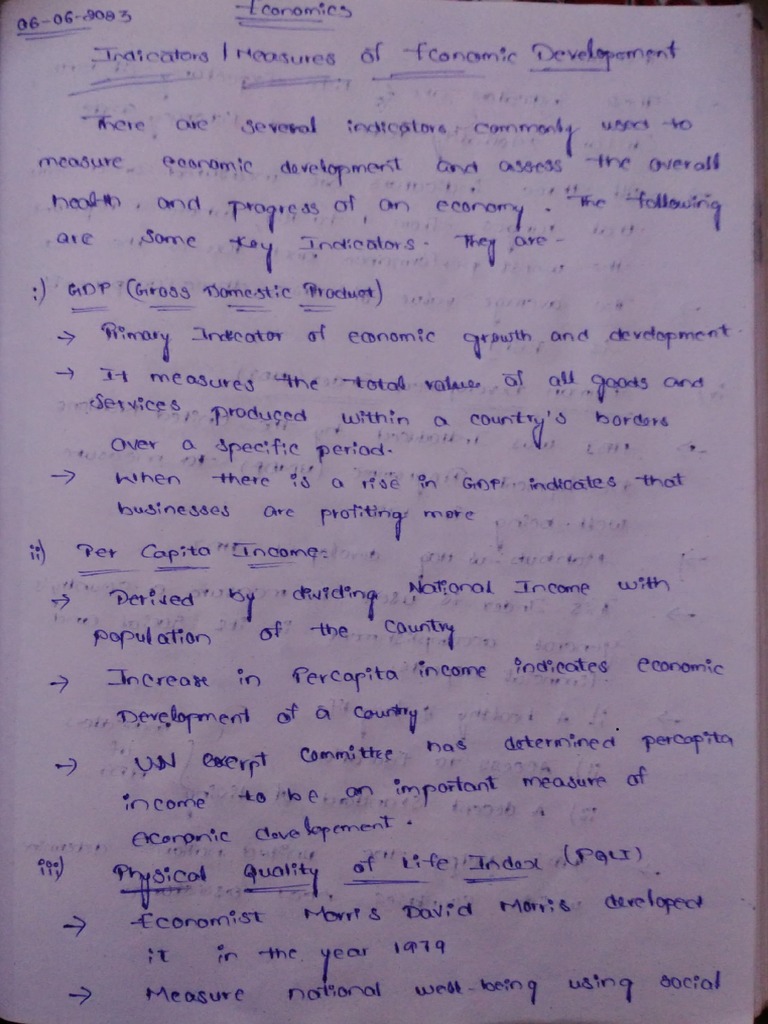 06-06-2023
Economics
Indicators / Measures of Economic Developement
There are several indicators commonly used to
measure economic development and assess the overall
health and progress of an economy. The following
are some key Indicators. They are -
i) GDP (Gross Domestic Product)
→ Primary Indicator of economic growth and development
→ It measures the total value of all goods and
services produced within a country's borders
over a specific period.
→ When there is a rise in GDP indicates that
businesses are profiting more
ii) Per Capita Income:
→ Derived by dividing National Income with
population of the country
→ Increase in Percapita income indicates economic
Development of a country.
→ UN exerpt committee has determined percapita
income to be an important measure of
economic development.
iii) Physical Quality of Life Index (PQLI)
→ Economist Morris David Morris developed
it in the year 1979
→ Measure national well-being using social